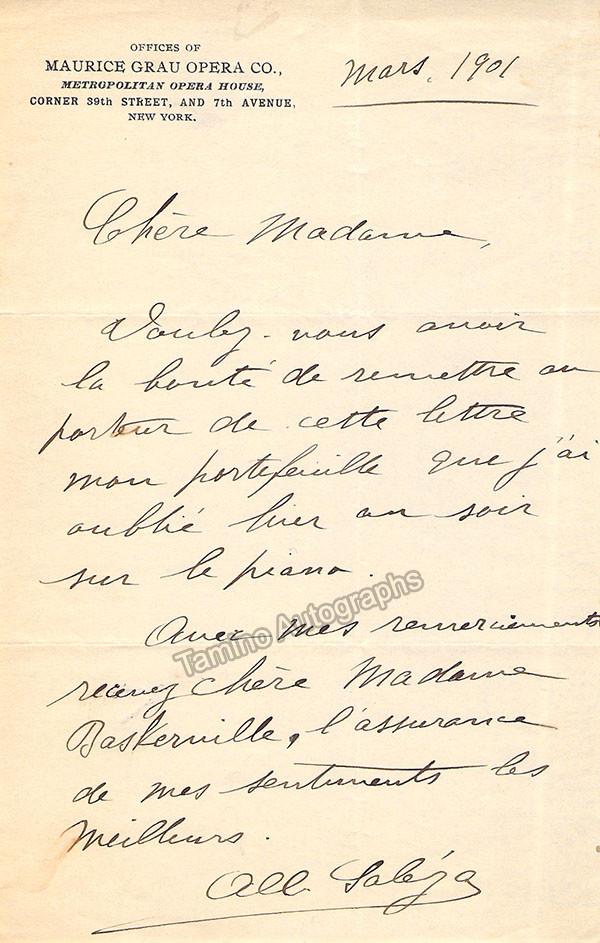 OFFICES OF
MAURICE GRAU OPERA CO.,
METROPOLITAN OPERA HOUSE,
CORNER 39th STREET, AND 7th AVENUE,
NEW YORK.
Mars. 1901
Chère Madame,
Voulez-vous avoir
la bonté de remettre au
porteur de cette lettre
mon portefeuille que j'ai
oublié hier au soir
sur le piano.
Avec mes remerciements
Tamino Autographs
recevez Chère Madame
Baskerville, l'assurance
de mes sentiments les
meilleurs.
Alb. Saléza